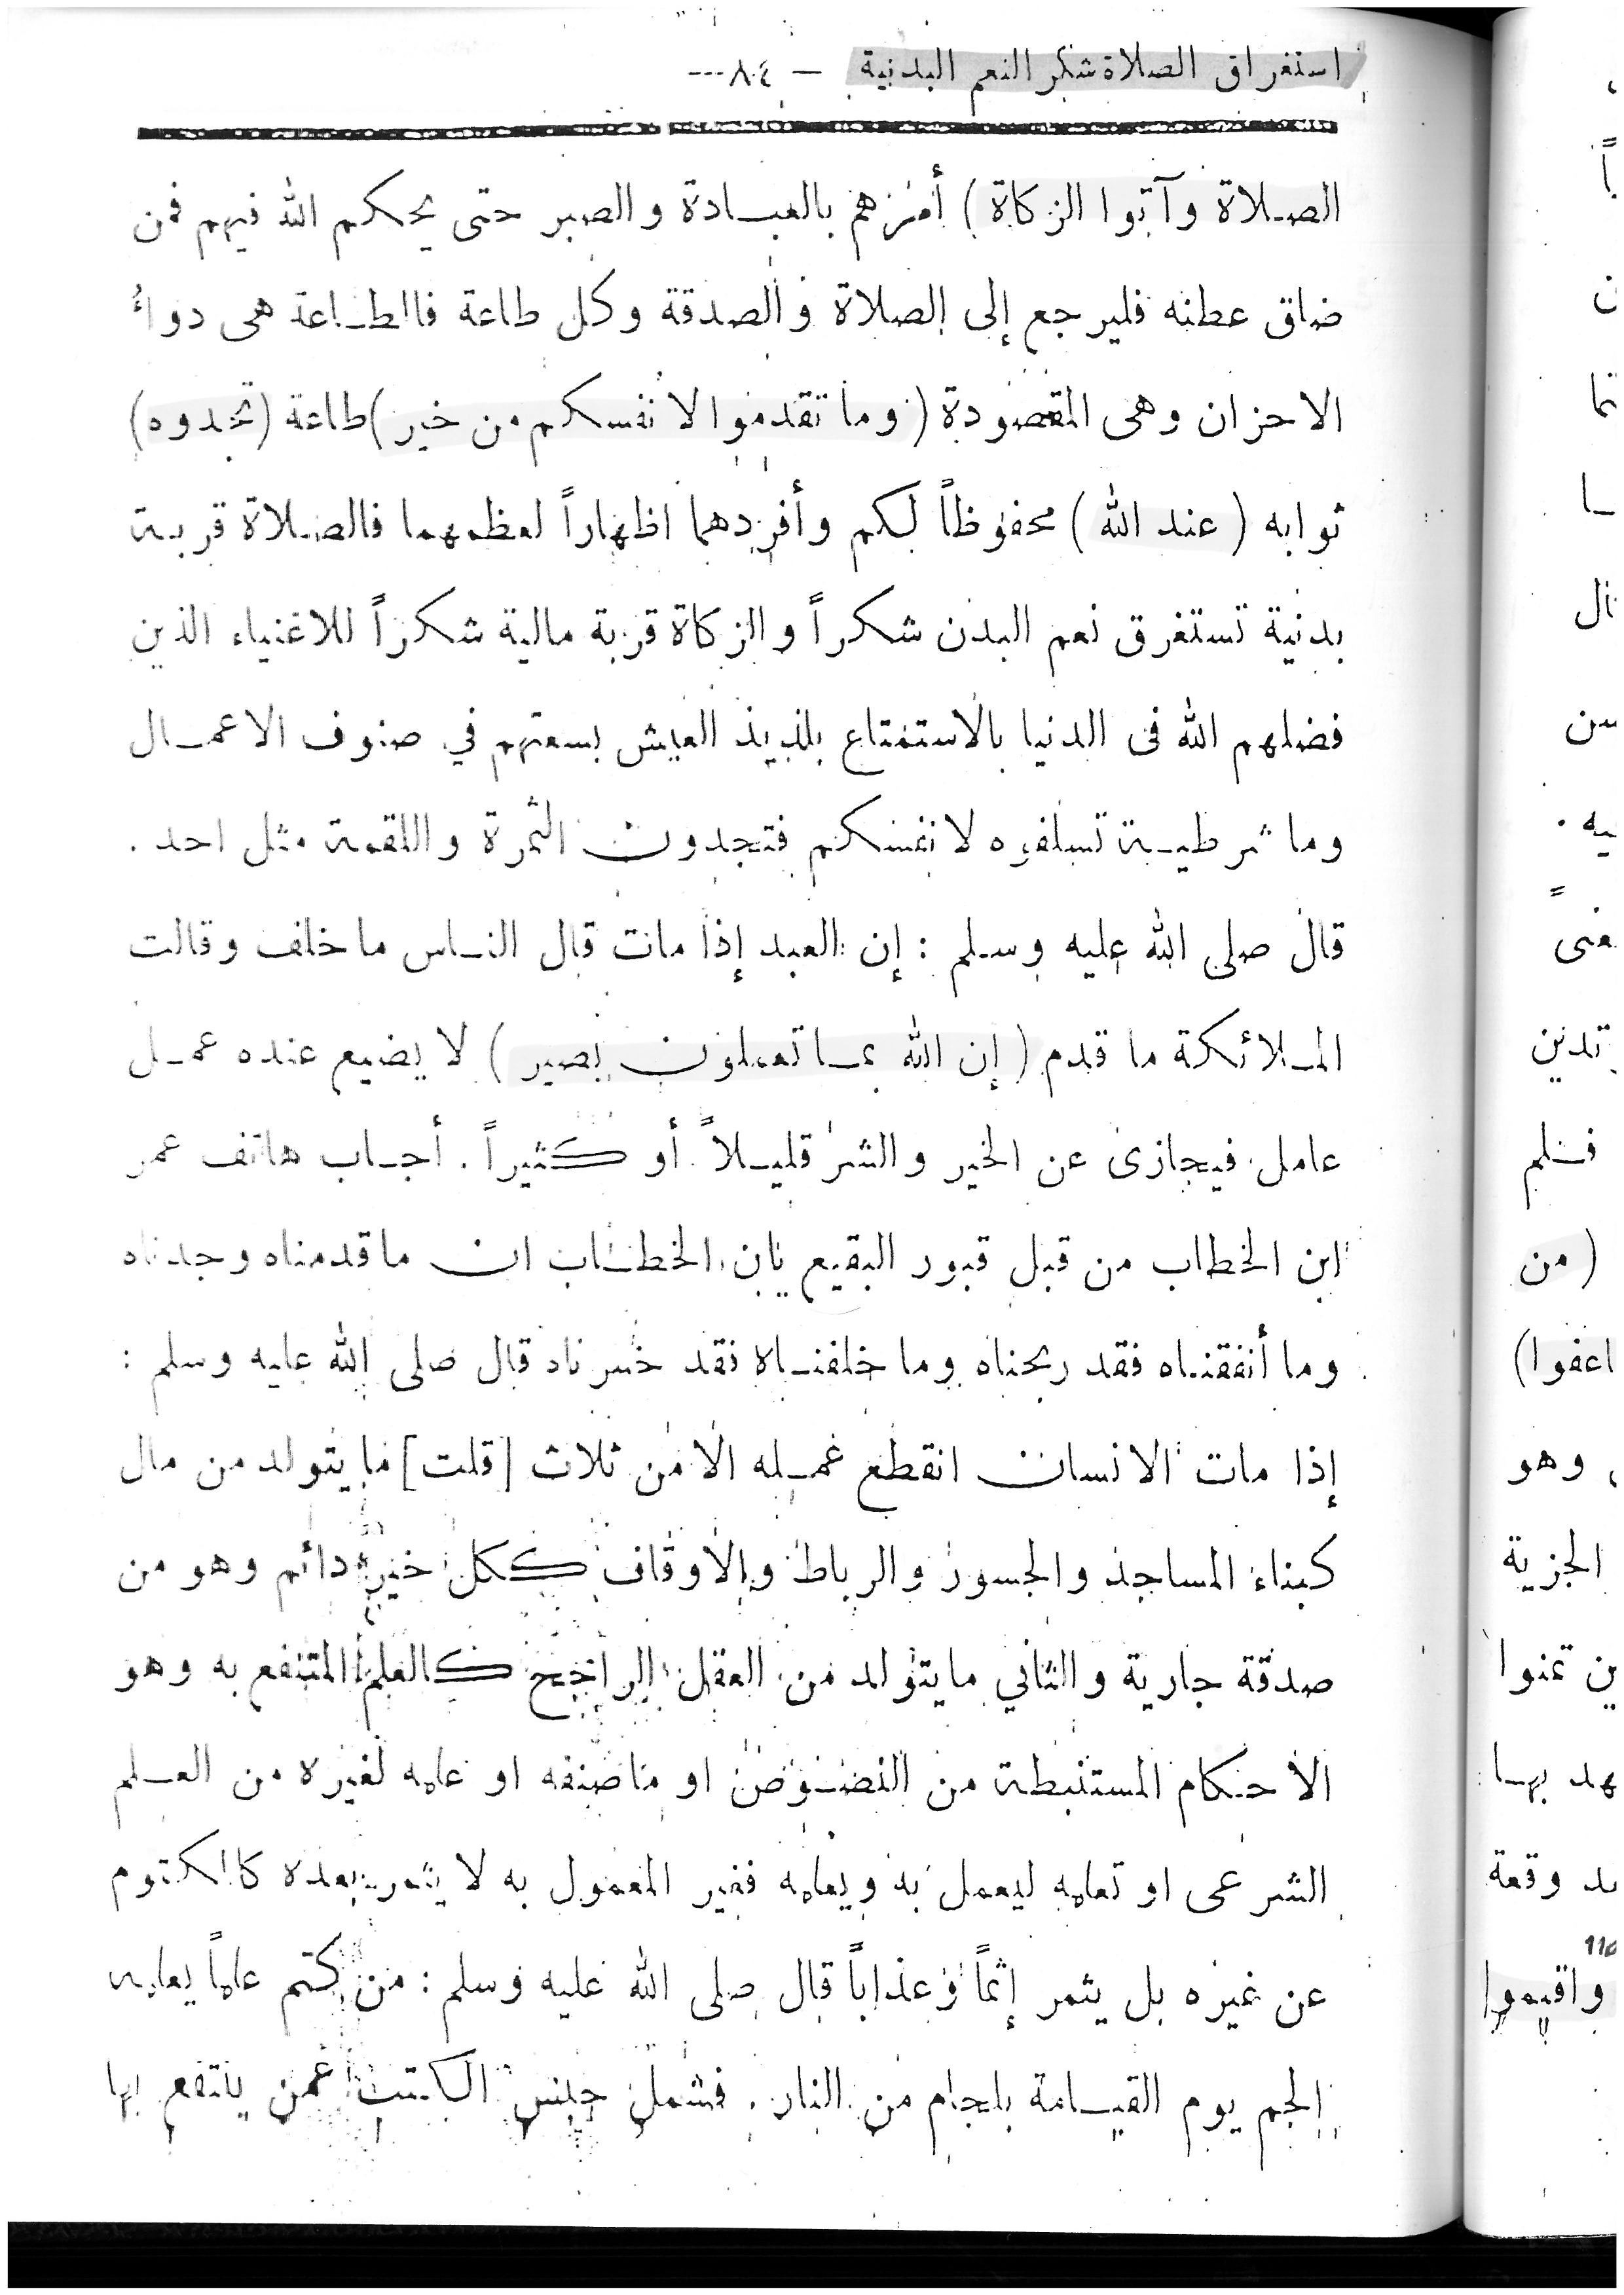 استغراق الصلاة شكر النعم البدنية — ٨٠٤ ---
الصلاة وآتوا الزكاة) أمرهم بالعبادة والصبر حتى يحكم الله فيهم فمن
ضاق عطنه فليرجع إلى الصلاة والصدقة وكل طاعة فالطاعة هى دواء
الاحزان وهى المقصودة (وما تقدموا لانفسكم من خير) طاعة (تجدوه)
ثوابه (عند الله) محفوظاً لكم وأفردهما اظهاراً لعظمهما فالصلاة قربة
بدنية تستغرق نعم البدن شكراً والزكاة قربة مالية شكراً للاغنياء الذين
فضلهم الله فى الدنيا بالاستمتاع بلذيذ العيش بسعتهم في صنوف الاعمال
وما طيبة تسلفوه لانفسكم فتجدون الثمرة واللقمة مثل احد .
قال صلى الله عليه وسلم : إن العبد إذا مات قال الناس ما خلف وقالت
الملائكة ما قدم (إن الله بما تعملون بصير) لا يضيع عنده عمل
عامل فيجازى عن الخير والشر قليلاً أو كثيراً . أجاب هاتف عمر
ابن الخطاب من قبل قبور البقيع يابن الخطاب ان ماقدمناه وجدناه
وما أنفقناه فقد ربحناه وما خلفناه فقد خسرناه قال صلى الله عليه وسلم :
إذا مات الانسان انقطع عمله الا من ثلاث [قلت] ما يتولد من مال
كبناء المساجد والجسور والرباط والاوقاف ككل خير دائم وهو من
صدقة جارية والثاني مايتولد من العقل الراجح كالعلم المتنفع به وهو
الاحكام المستنبطة من النصوص او ماصنفه او علمه لغيره من العلم
الشرعى او تعلمه ليعمل به ويعلمه فغير المعمول به لا يثمر بعده كالمكتوم
عن غيره بل يثمر إثماً وعذاباً قال صلى الله عليه وسلم : من كتم علماً يعلمه
الجم يوم القيامة بلجام من النار . فشمل حبس الكتب عمن ينتفع بها
تدين
فلم
(من
اعفوا)
وهو
الجزية
ين تمنوا
هد بها
وقعة
واقيموا